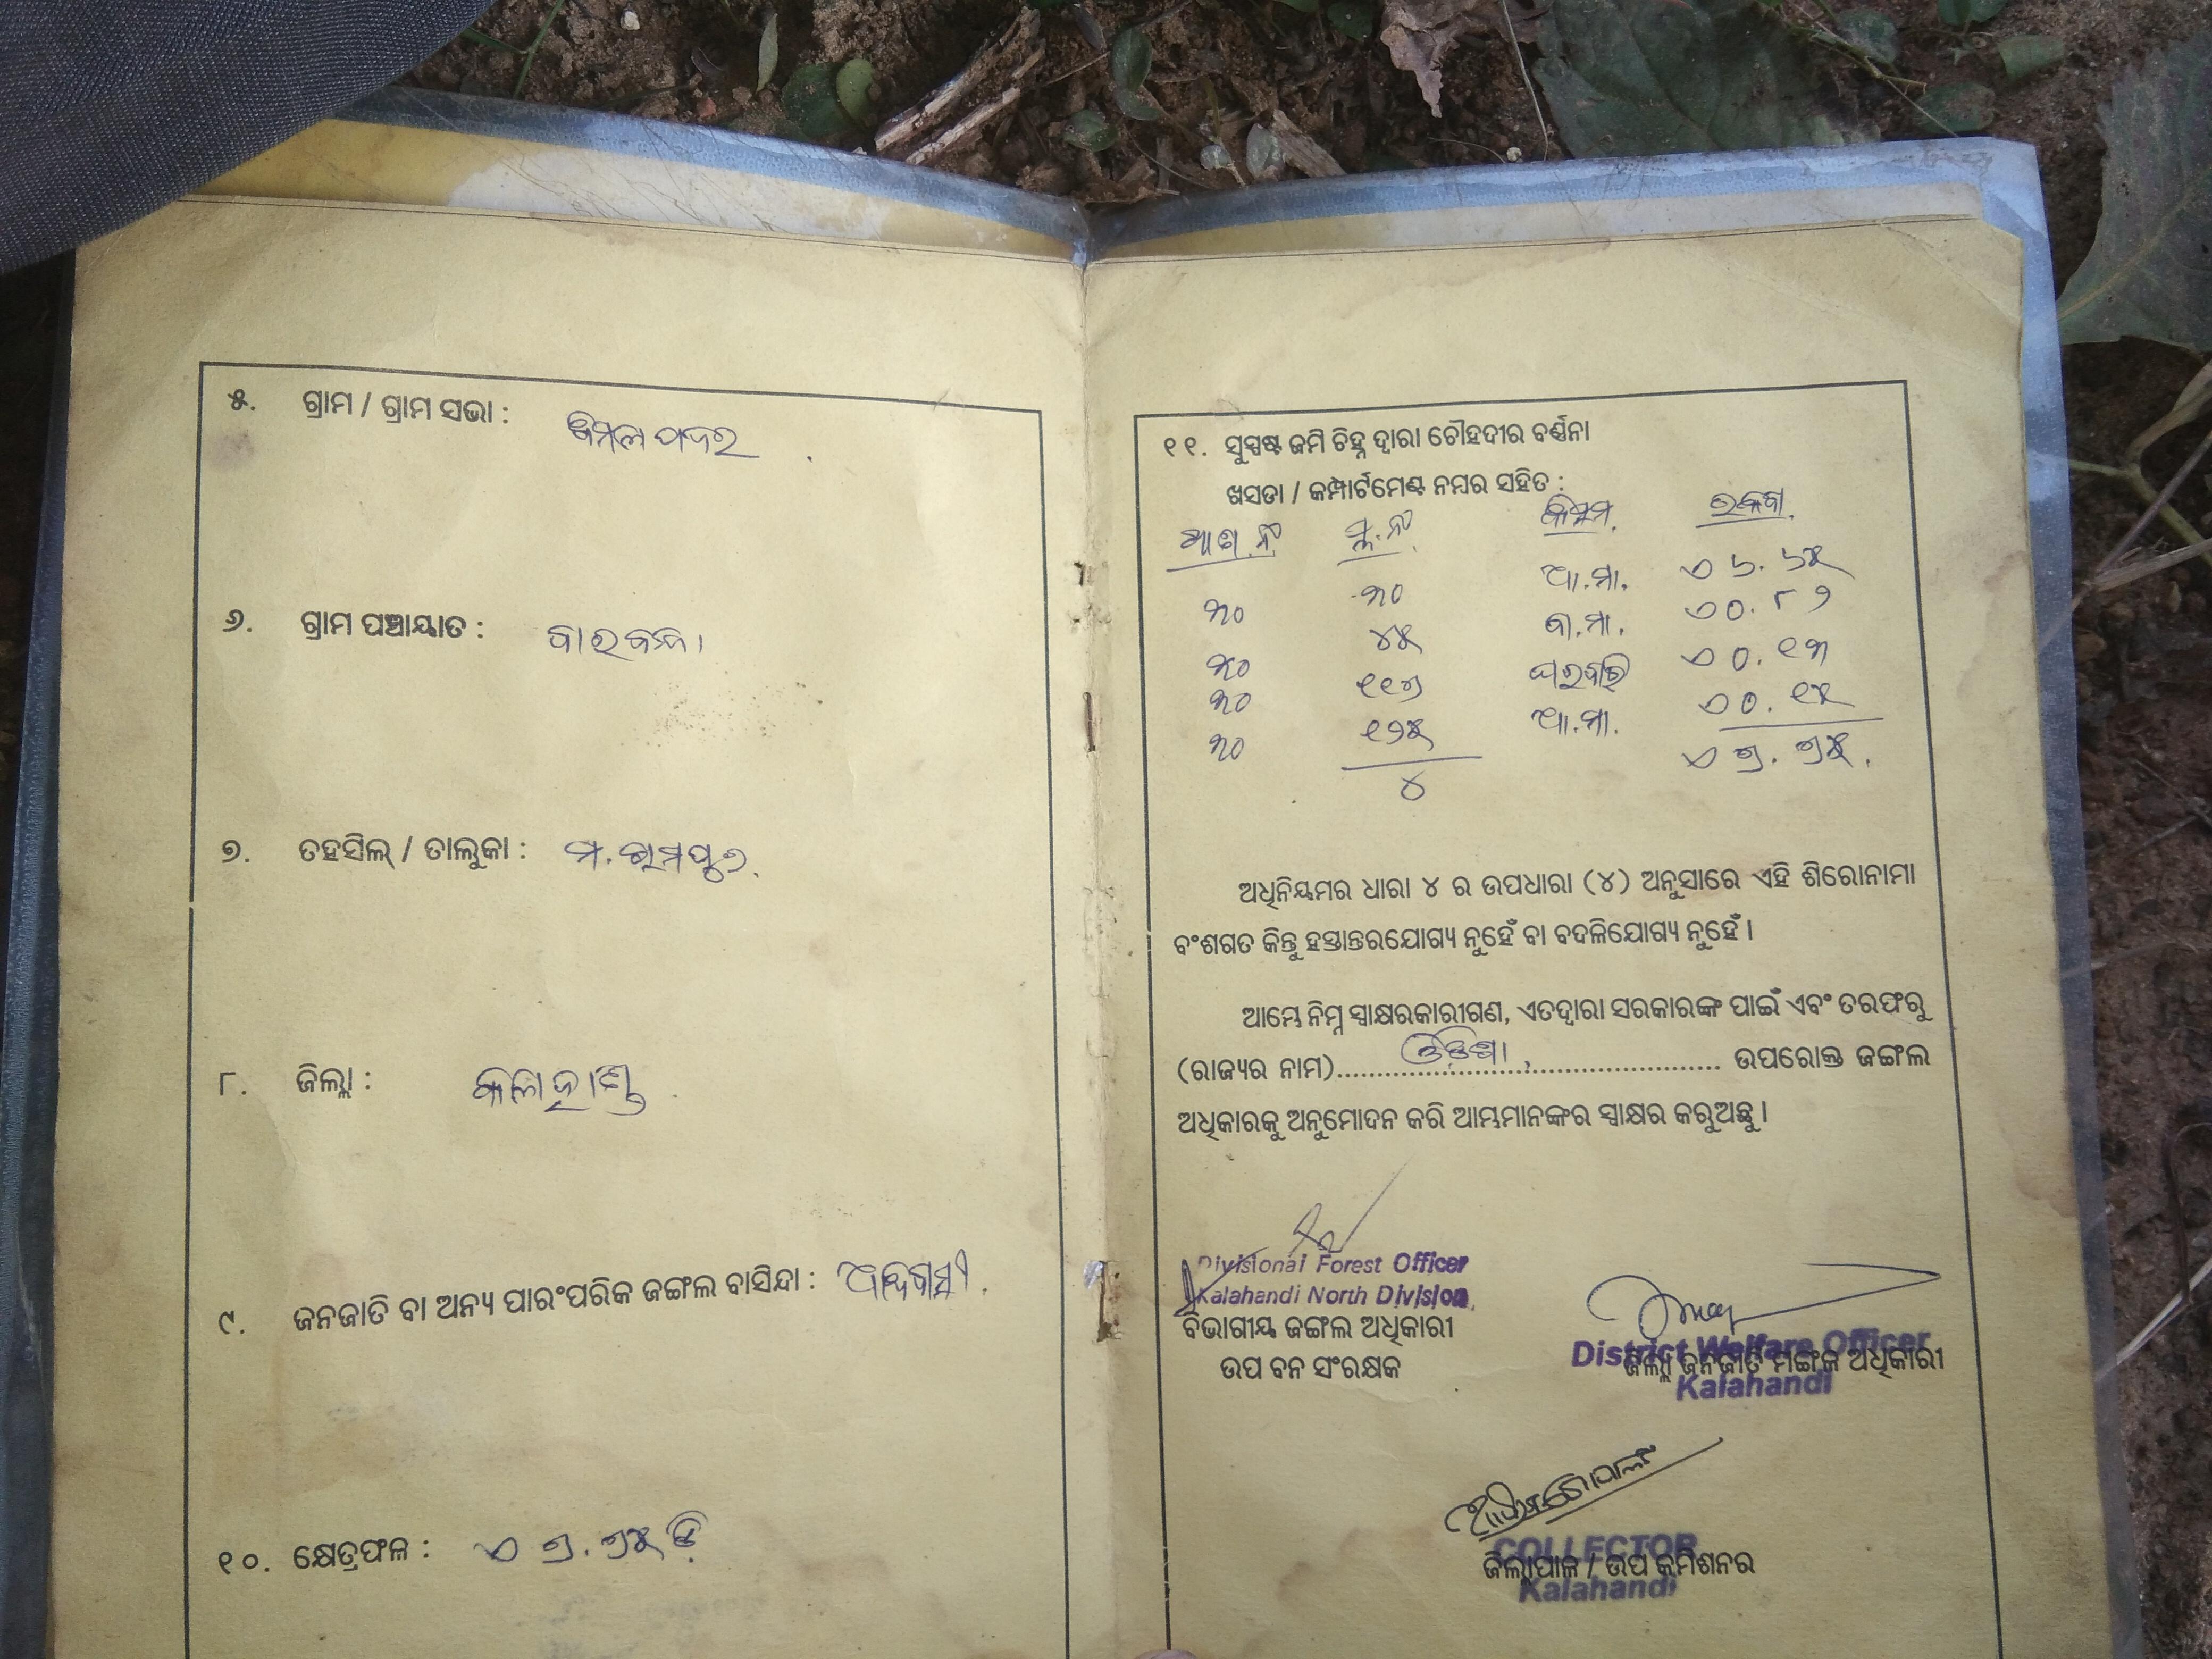 ୫. ଗ୍ରାମ / ଗ୍ରାମ ସଭା :
୬. ଗ୍ରାମ ପଞ୍ଚାୟାତ :
୭. ତହସିଲ୍ / ତାଲୁକା : ମ. ରାମପୁର.
୮. ଜିଲ୍ଲା : କଳାହାଣ୍ଡି
୯. ଜନଜାତି ବା ଅନ୍ୟ ପାରଂପରିକ ଜଙ୍ଗଲ ବାସିନ୍ଦା : ଆଦିବାସୀ.
୧୦. କ୍ଷେତ୍ରଫଳ :
୧୧. ସୁସ୍ପଷ୍ଟ ଜମି ଚିହ୍ନ ଦ୍ୱାରା ଚୌହଦୀର ବର୍ଣ୍ଣନା
ଖସଡା / କମ୍ପାର୍ଟମେଣ୍ଟ ନମ୍ବର ସହିତ :
କିସମ. ରକବା.
ଆ.ମା.
ବା.ମା. ଏ ୦.୮୨
ଘରବାରି ଏ ୦.୧୩
ଆ.ମା. ଏ ୦.୧୫
୪
ଅଧିନିୟମର ଧାରା ୪ ର ଉପଧାରା (୪) ଅନୁସାରେ ଏହି ଶିରୋନାମା
ବଂଶଗତ କିନ୍ତୁ ହସ୍ତାନ୍ତରଯୋଗ୍ୟ ନୁହେଁ ବା ବଦଳିଯୋଗ୍ୟ ନୁହେଁ ।
ଆମ୍ଭେ ନିମ୍ନ ସ୍ୱାକ୍ଷରକାରୀଗଣ, ଏତଦ୍ୱାରା ସରକାରଙ୍କ ପାଇଁ ଏବଂ ତରଫରୁ
(ରାଜ୍ୟର ନାମ)........ଓଡିଶା........ ଉପରୋକ୍ତ ଜଙ୍ଗଲ
ଅଧିକାରକୁ ଅନୁମୋଦନ କରି ଆମ୍ଭମାନଙ୍କର ସ୍ୱାକ୍ଷର କରୁଅଛୁ ।
Divisional Forest Officer
Kalahandi North Division.
ବିଭାଗୀୟ ଜଙ୍ଗଲ ଅଧିକାରୀ
ଉପ ବନ ସଂରକ୍ଷକ
District Welfare Officer
ଜିଲ୍ଲା ଜନଜାତି ମଙ୍ଗଳ ଅଧିକାରୀ
Kalahandi
COLLECTOR
ଜିଲ୍ଲାପାଳ / ଉପ କମିଶନର
Kalahandi